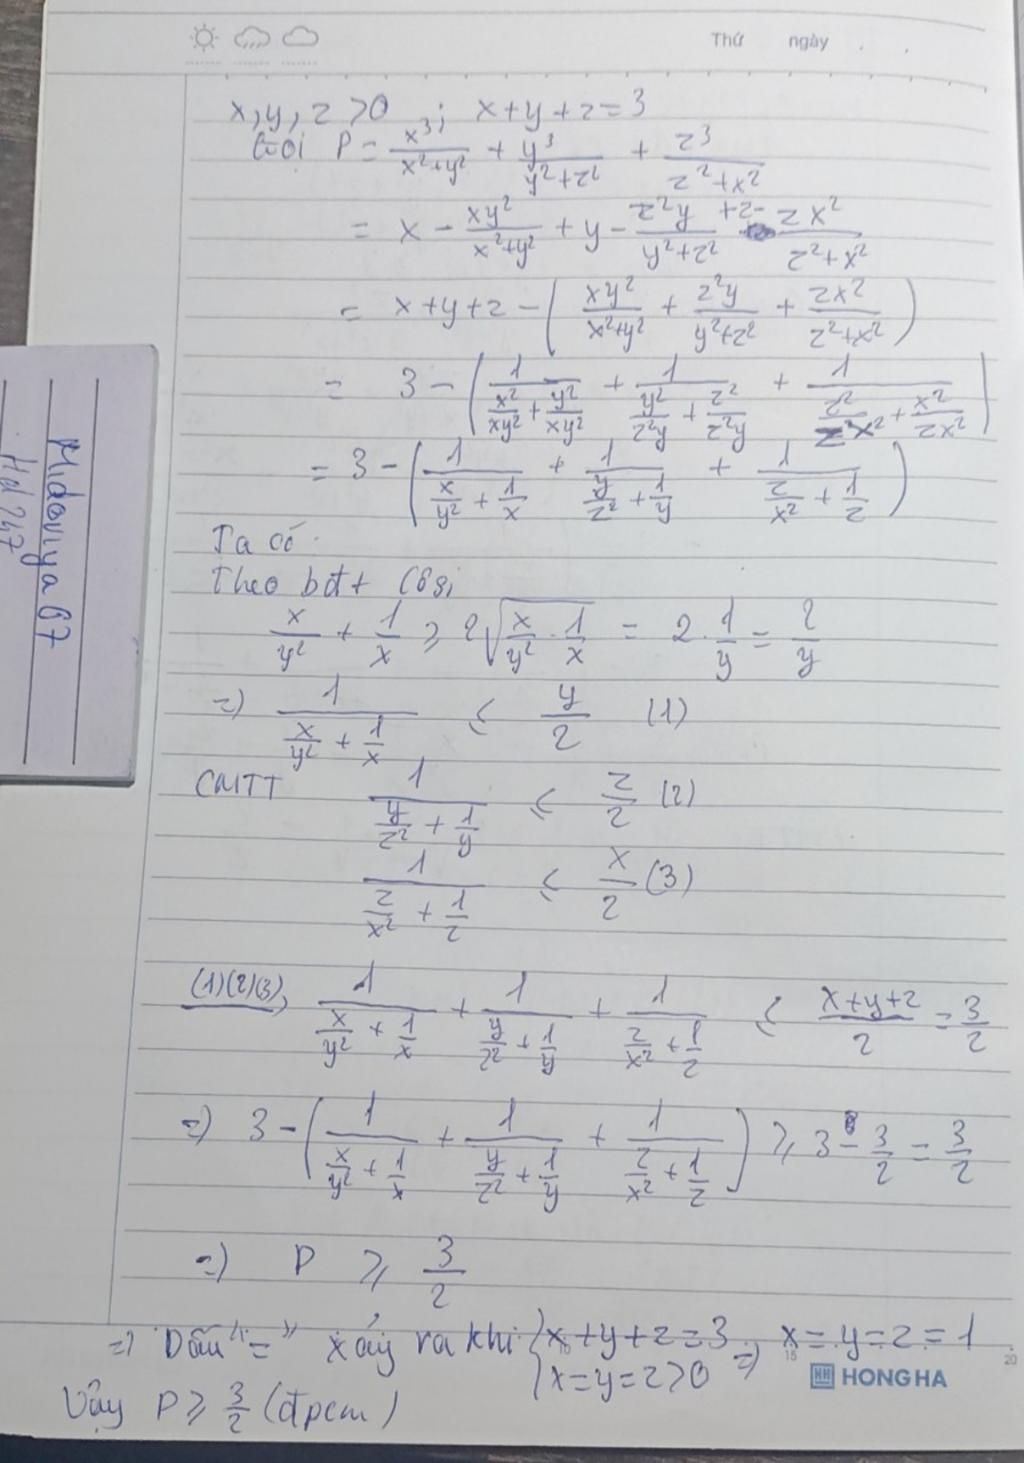 Thứ ngày . .
x, y, z > 0 ; x + y + z = 3
Gọi P = x³/(x²+y²) + y³/(y²+z²) + z³/(z²+x²)
= x - xy²/(x²+y²) + y - z²y/(y²+z²) + z - zx²/(z²+x²)
= x + y + z - ( xy²/(x²+y²) + z²y/(y²+z²) + zx²/(z²+x²) )
= 3 - ( 1/(x²/xy² + y²/xy²) + 1/(y²/z²y + z²/z²y) + 1/(z²/zx² + x²/zx²) )
= 3 - ( 1/(x/y² + 1/x) + 1/(y/z² + 1/y) + 1/(z/x² + 1/z) )
Ta có
Theo bđt Côsi
x/y² + 1/x ⩾ 2√(x/y² . 1/x) = 2 . 1/y = 2/y
=) 1/(x/y² + 1/x) ⩽ y/2 (1)
CMTT 1/(y/z² + 1/y) ⩽ z/2 (2)
1/(z/x² + 1/z) ⩽ x/2 (3)
(1)(2)(3), 1/(x/y² + 1/x) + 1/(y/z² + 1/y) + 1/(z/x² + 1/z) ⩽ (x+y+z)/2 = 3/2
=) 3 - ( 1/(x/y² + 1/x) + 1/(y/z² + 1/y) + 1/(z/x² + 1/z) ) ⩾ 3 - 3/2 = 3/2
=) P ⩾ 3/2
=) Dấu "=" xảy ra khi { x + y + z = 3 =) x = y = z = 1
x = y = z > 0
15
20
HONG HA
Vậy P ⩾ 3/2 (đpcm)
Midoriya 67
Hd 247